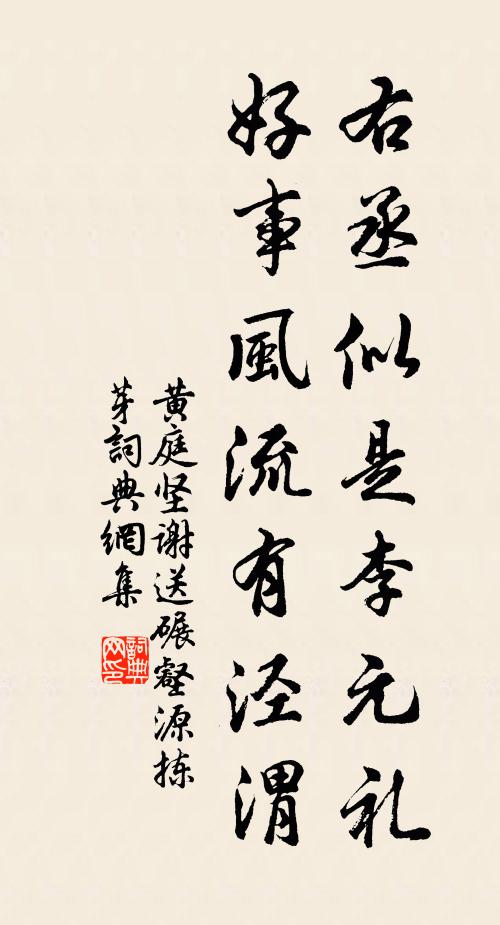 右丞似是李元礼
好事風流有泾渭
黄庭坚谢送碾壑源拣
芽詞典網集
詞典
网印